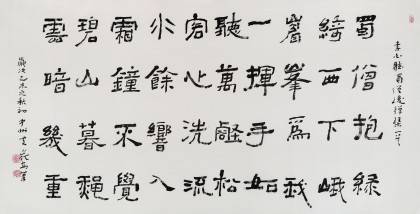 李白聽蜀僧濬彈琴
蜀僧抱綠
綺西下峨
眉峯爲我
一揮手如
聽萬壑松
客心洗流
水餘響入
霜鐘不覺
碧山暮穐
雲暗幾重
歲次乙未之秋初中州